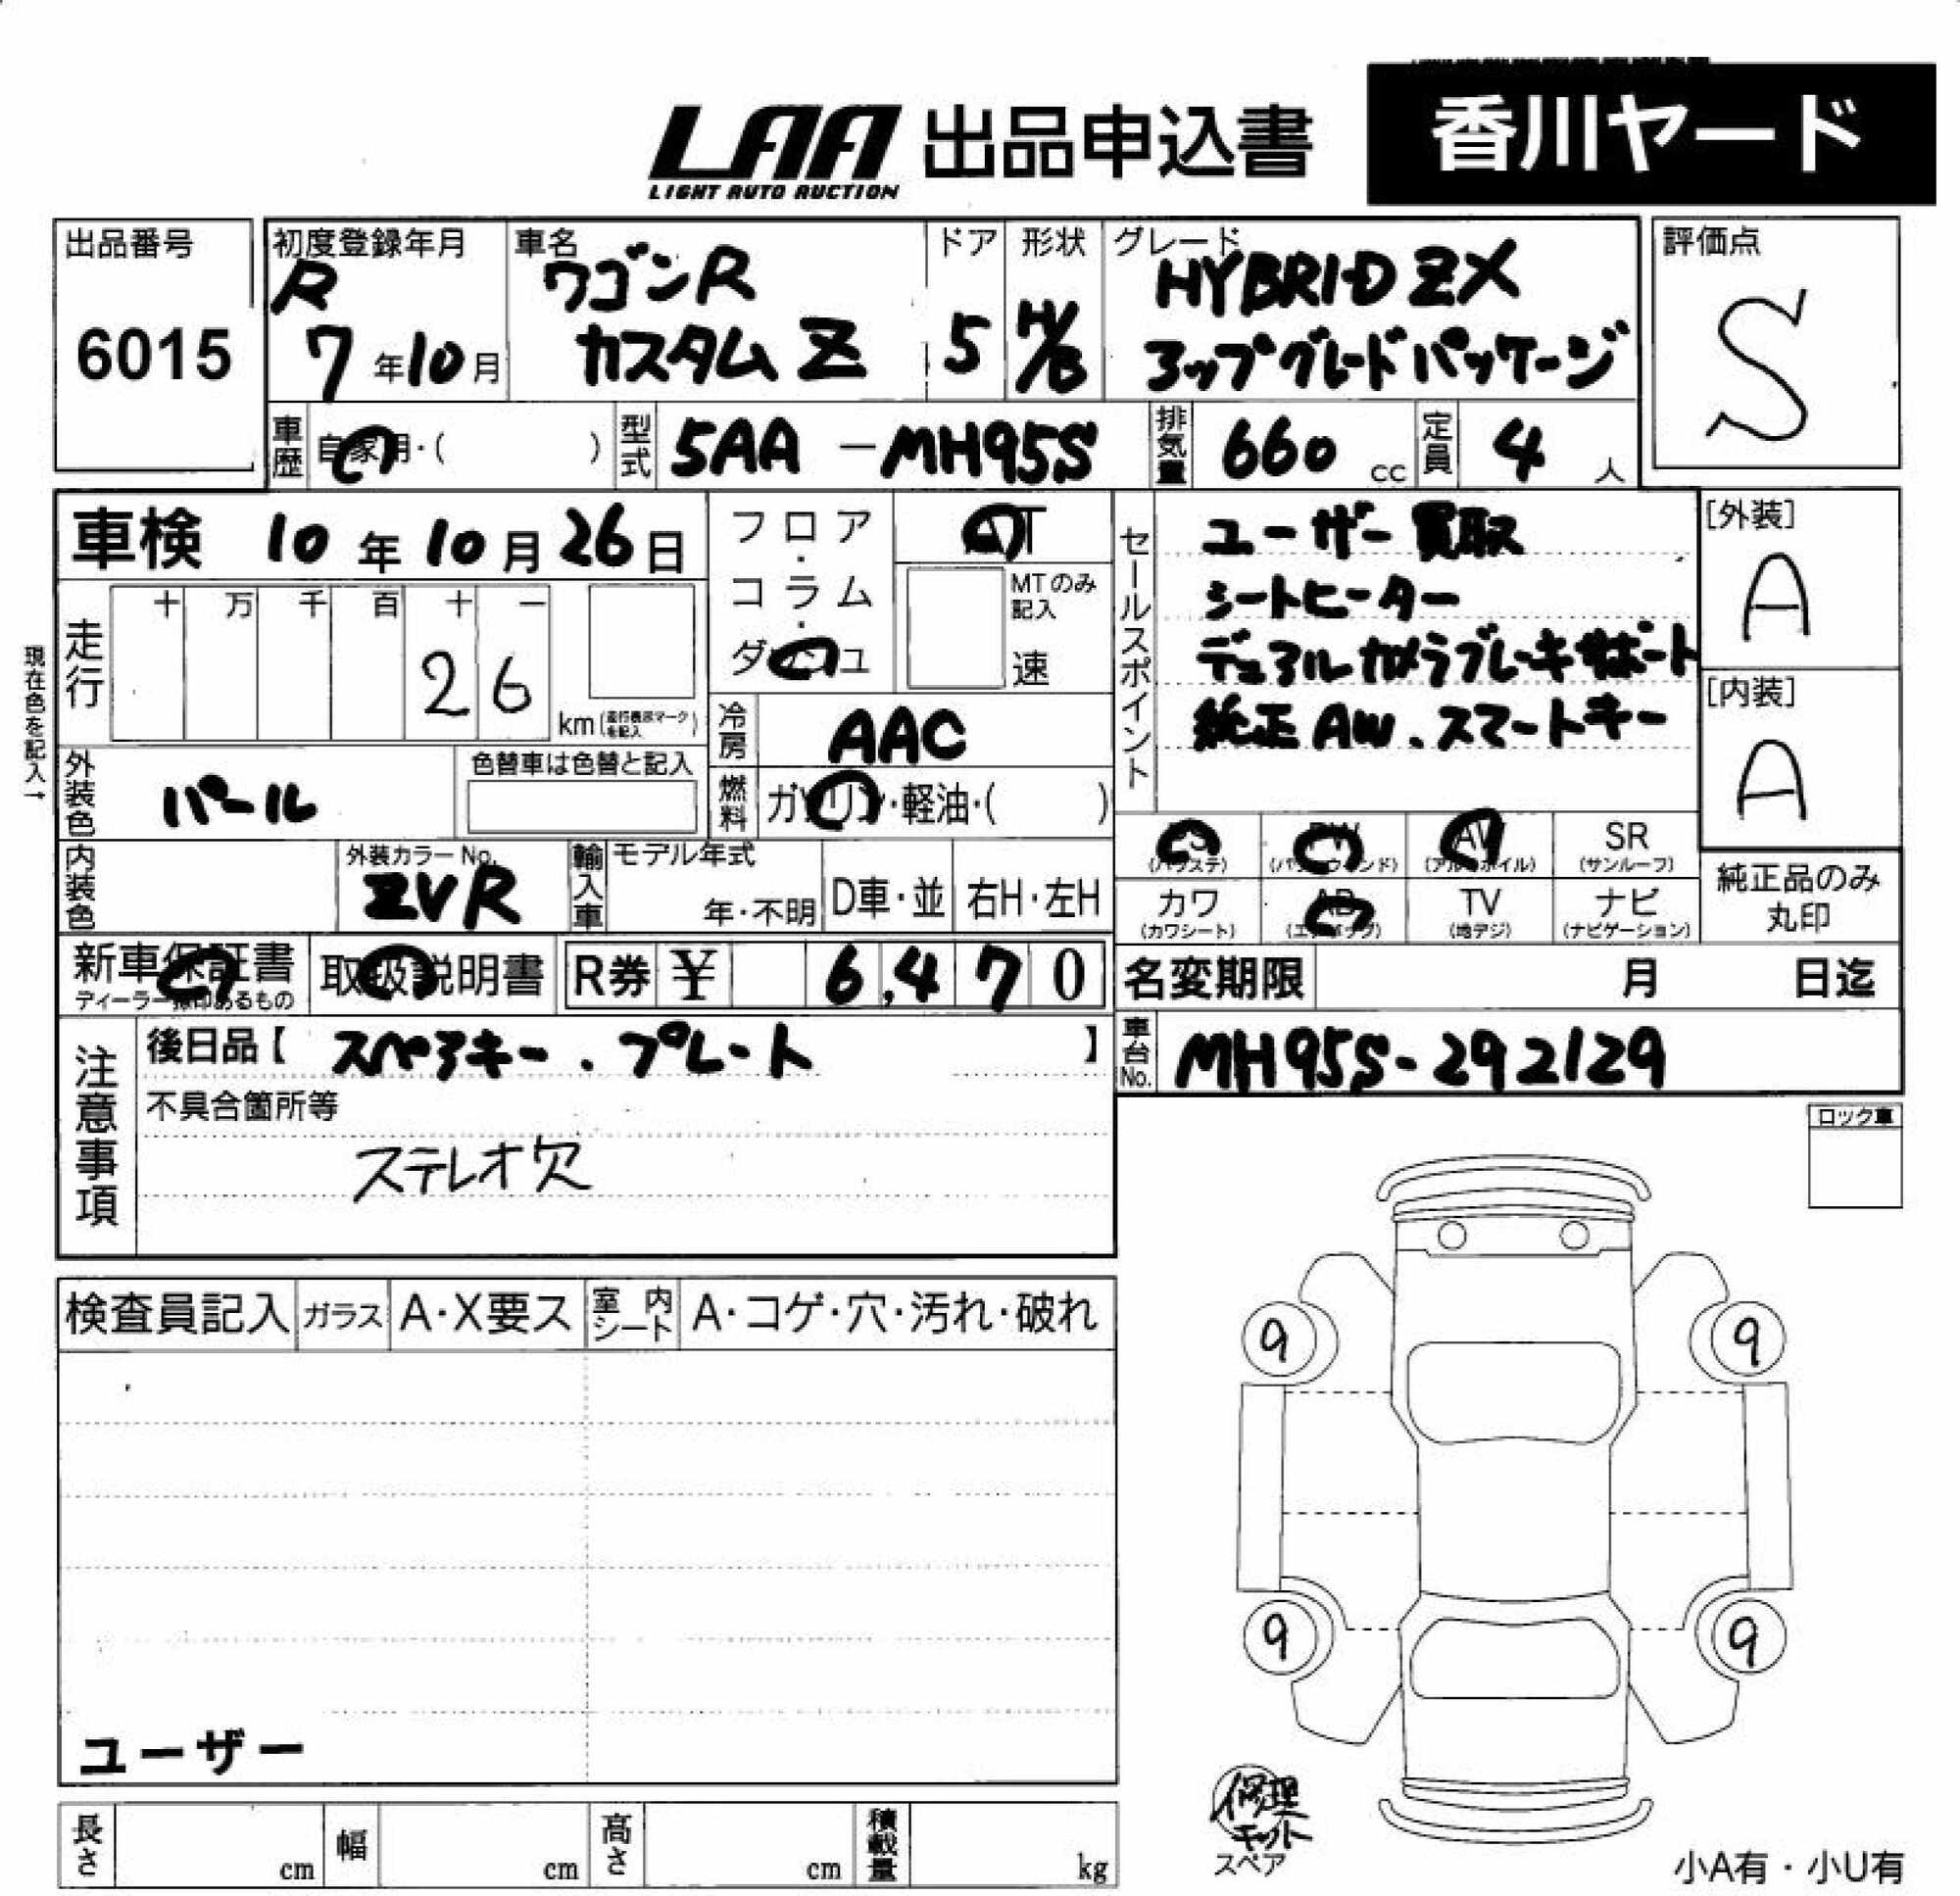 LAA 出品申込書 香川ヤード
LIGHT AUTO AUCTION
出品番号 初度登録年月 車名 ドア 形状 グレード 評価点
6015 R 7年10月 ワゴンR カスタムZ 5 H/B HYBRID ZX S
アップグレードパッケージ
車歴 自家用・( ) 型式 5AA-MH95S 排気量 660 cc 定員 4 人
車検 10年10月26日 フロア・コラム・ダッシュ AT
MTのみ記入 速
セールスポイント
ユーザー買取
シートヒーター
デュアルカメラブレーキサポート
純正AW.スマートキー
[外装] A
[内装] A
現在色を記入→
走行 十 万 千 百 十 一
26 km(走行表示マークを記入)
冷房 AAC
外装色 パール 色替車は色替と記入
燃料 ガソリン・軽油・( )
PS (パワステ) PW (パワーウィンド) AW (アルミホイル) SR (サンルーフ)
カワ (カワシート) AB (エアバック) TV (地デジ) ナビ (ナビゲーション)
純正品のみ丸印
内装色 外装カラーNo. ZVR 輸入車 モデル年式 年・不明 D車・並 右H・左H
新車保証書 ディーラー捺印あるもの 取扱説明書 R券 ¥ 6,470
名変期限 月 日迄
車台No. MH95S-292129
注意事項
後日品【 スペアキー.プレート 】
不具合箇所等
ステレオ欠
ロック車
検査員記入 ガラス A・X要ス 室内シート A・コゲ・穴・汚れ・破れ
9 9
9 9
ユーザー
修理キット
スペア
長さ cm 幅 cm 高さ cm 積載量 kg
小A有・小U有